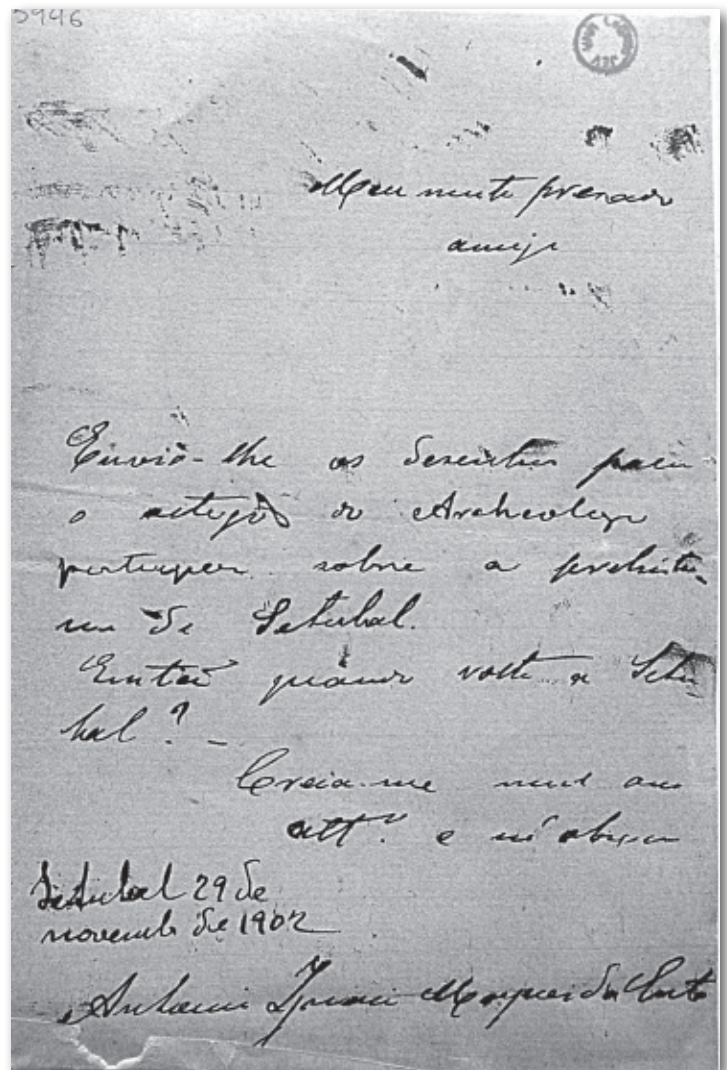 5946
Meu muito presado
amigo
Envio-lhe os desenhos para
o artigo do Archeologo
portuguez sobre a prehisto-
ria de Setubal.
Então quando volta a Setu
bal? -
Creia-me
att.º e
Setubal 29 de
novembro de 1902
Antonio Ignacio Marques da Costa